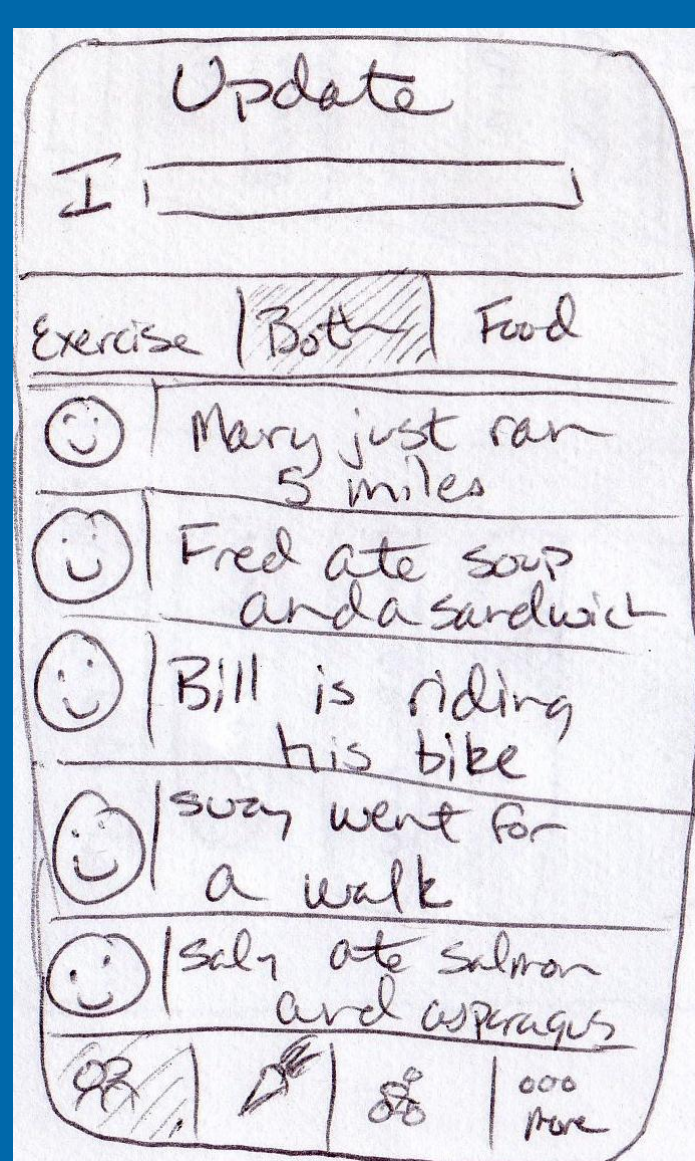 Update
I
Exercise Both Food
Mary just ran
5 miles
Fred ate soup
and a sandwich
Bill is riding
his bike
Suzy went for
a walk
Saly ate salmon
and asparagus
More